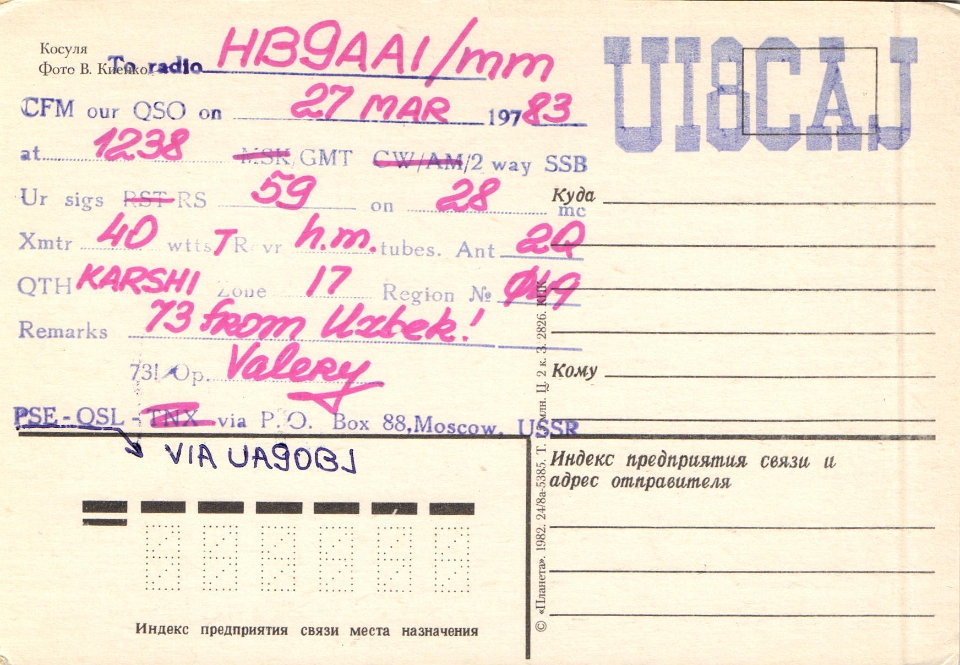 Косуля
Фото В. Киенко
To radio HB9AAI/mm
UI8CAJ
CFM our QSO on 27 MAR 19783
at 1238 MSK GMT CW/AM/2 way SSB
Ur sigs RST RS 59 on 28 mc
Xmtr 40 wtts TR vr h.m. tubes. Ant 2Q
QTH KARSHI Zone 17 Region №
Remarks 73 from Uzbek!
73! Op. Valery
PSE-QSL-TNX via P. O. Box 88, Moscow, USSR
VIA UA9OBJ
Куда
Кому
Индекс предприятия связи и
адрес отправителя
Индекс предприятия связи места назначения
© «Планета». 1982. 24/8а-5385. Т. млн. Ц. 2 к. З. 2826. КПК